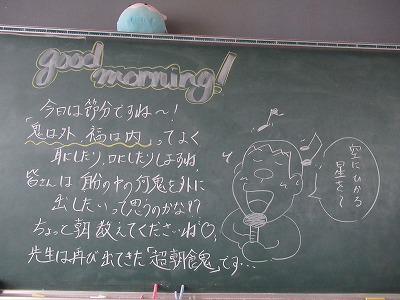 good
morning!
今日は節分ですね〜!
「鬼は外 福は内」ってよく
耳にしたり、口にしたりしますね。
皆さんは自分の中の何鬼を外に
出したいって思うのかな!?
ちょっと朝教えてくださいね♡。
先生は再び出てきた「超朝食鬼」です…
空にひかる
星を〜